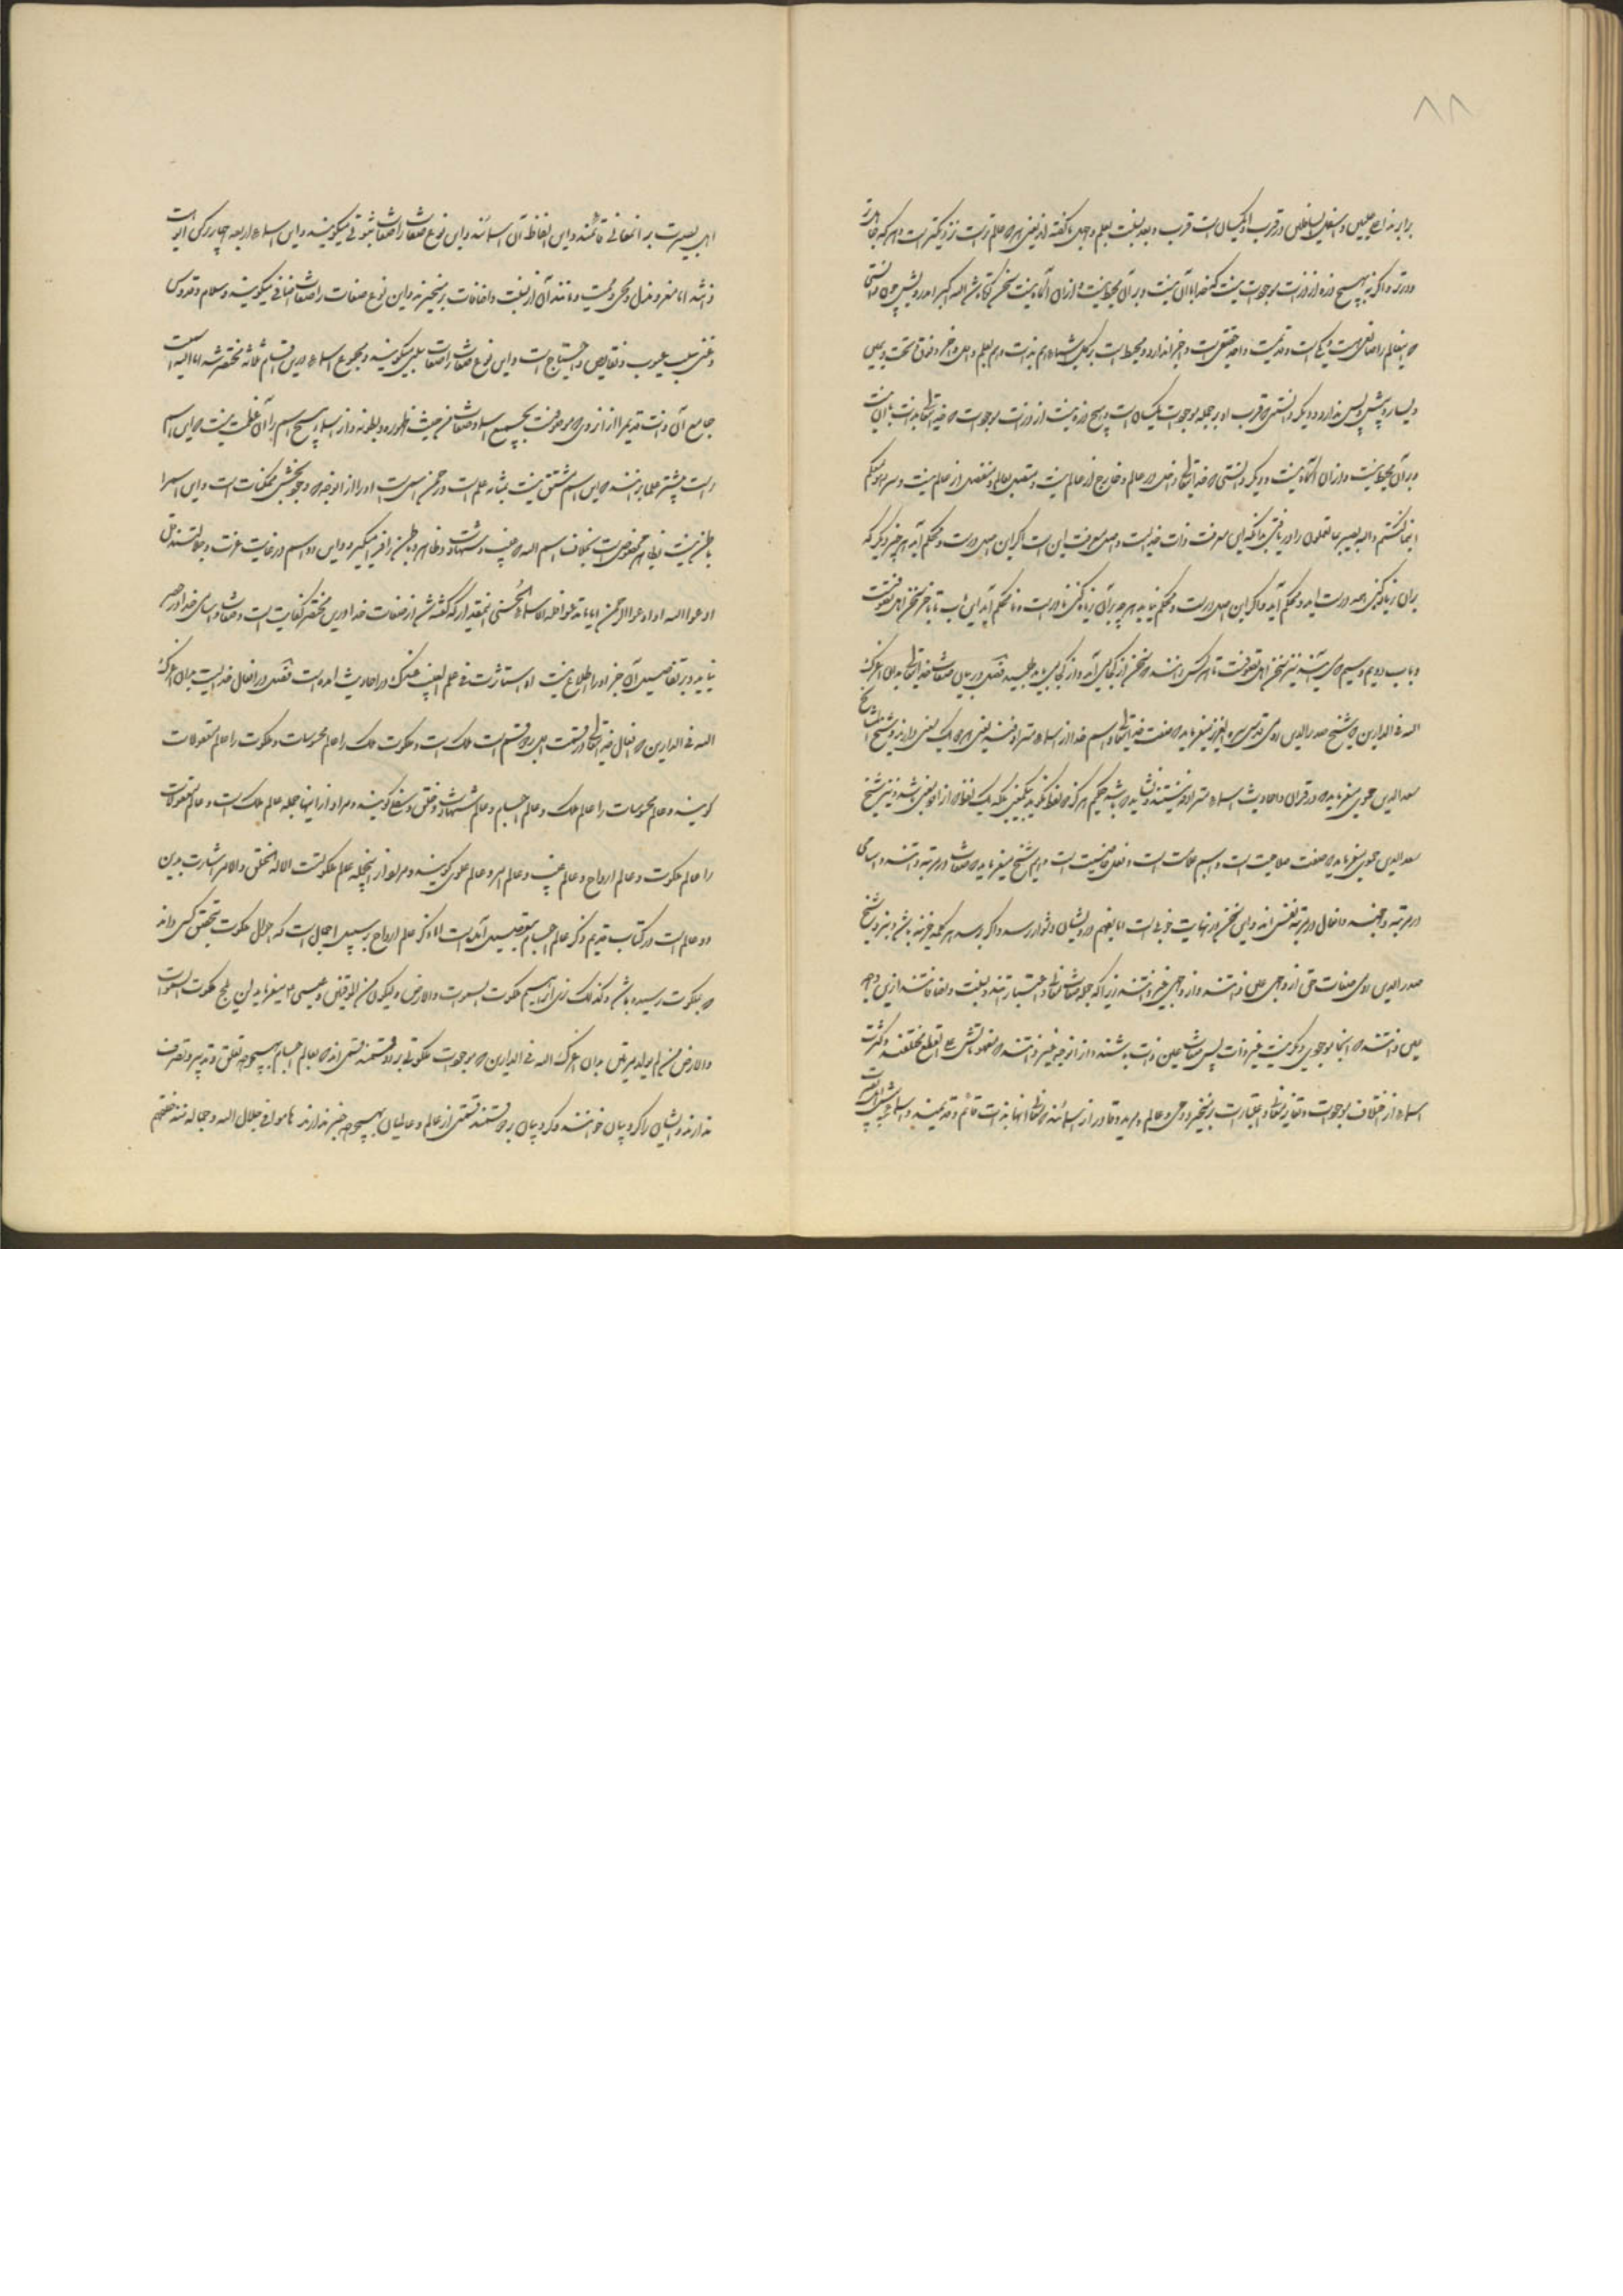 ۸۸
برابرند اعلی علیین و اسفل السافلین در قرب او یکسان است قرب و بعد بنسبت بعلم و جهل ما گفته‌اند یعنی هر که عالم‌تر است نزدیکتر است و هر که جاهل‌تر
دورتر و اگر نه هیچ ذره از ذرات موجودات نیست که خدا با آن نیست و بر آن محیط نیست و از آن آگاه نیست سخن کوتاه شد الله اکبر ای درویش چون دانستی
که این عالم را صانعی هست و یکی است و قدیمست و واحد حقیقی است و اجزا ندارد و محیط است بر کل اشیاء هم بذات و هم بعلم و اول و آخر و فوق و تحت و یمین
و یسار و پیش و پس ندارد و دیگر دانستی که قرب او بر جمله موجودات یکسان است و هیچ ذره نیست از ذرات موجودات که خدای تعالی بذات با آن نیست
و بر آن محیط نیست و از آن آگاه نیست و دیگر دانستی که خدای تعالی داخل عالم و خارج از عالم نیست و متصل بعالم و منفصل از عالم نیست و سر و هو معکم
اینما کنتم والله بصیر بما تعملون را دریافتی بدانکه این معرفت ذات خدایست و اصل معرفت این است اگر این اصل درست و محکم آید هر چیز دیگر که
بر آن زیاده کنی همه درست آید و محکم آید و اگر این اصل درست و محکم نیاید هر چه بر آن زیاده کنی نادرست و نامحکم آید این باب تا به آخر سخن اهل تصوفست
و باب دویم و سیم که می‌آید نیز سخن اهل تصوفست تا هر کس بداند که سخن از کجا می‌آید و از کجا می‌باید طلبید فصل در بیان صفات خدای تعالی بدان اعزک
الله فی الدارین که شیخ صدرالدین رومی قدس سره العزیز میفرماید که صفت خدای تعالی و اسم خدا از اسماء مترادفند یعنی هر دو یک معنی دارند و شیخ المشایخ
سعدالدین حموی میفرماید که در قرآن و احادیث اسماء مترادف نیستند و نشاید که باشد حکیم هرگز دو لفظ نگوید بیک معنی بلکه یک لفظ که از او دو معنی باشد و نیز شیخ
سعدالدین حموی میفرماید که صفت صلاحیت است و اسم علامت است و فعل خاصیت است و هم شیخ میفرماید که صفات در مرتبه ذاتند و اسامی
در مرتبه وجهند و افعال در مرتبه نفس‌اند و این سخن در نهایت خوبی است اما بفهم درویشان دشوار رسد و اگر برسد هر کجا چیزی باشد و نزدیک شیخ
صدرالدین رومی صفات حق از وجهی عین ذاتند و از وجهی غیر ذاتند زیرا که جمله صفات معانی و اعتباراتند و نسبت و اضافاتند از این وجه
عین ذاتند که آنجا موجودی دیگر نیست غیر ذات پس صفات عین ذات باشند و از آن وجه غیر ذاتند که مفهوماتش علی القطع مختلفند و کثرت
اسماء از اختلاف موجودات و تغایر معانی و اعتبارات برمیخیزد و حی و عالم و مرید و قادر از اسمائند که معانی آنها بذات قائم و قدیمند و اسماء
اهل بصیرت به آن معانی قائمند و این الفاظ آن اسمائند و این نوع صفات را صفات ثبوتی میگویند و این اسماء اربعه چهار رکن
ذاتند اما معز و مذل و محیی و ممیت و مانند آن از نسبت و اضافات برمیخیزند و این نوع صفات را صفات اضافی میگویند و سلام و قدوس
و غنی سلب عیوب و نقایص و احتیاج است و این نوع صفات را صفات سلبی میگویند و مجموع اسماء در این اقسام ثلاثه منحصر شد اما الله اسمیست
جامع آن ذات قدیم را از آن روی که موصوفست بجمیع اسماء و صفات من حیث ظهوره و بطونه و از اسماء هیچ اسم را آن عظمت نیست که این اسم
راست بیشتر علما برآنند که این اسم مشتق نیست بمثابه علم است و رحمن اسمی است او را از آنوجه که وجودبخش ممکنات است و این اسم را
باطن نیست بظاهر مخصوص است بخلاف اسم الله که غیب و شهادت و ظاهر و باطن را فرا میگیرد و این دو اسم در غایت عزت و جلالتند قل
ادعوا الله او ادعوا الرحمن ایاما تدعوا فله الاسماء الحسنی اینقدر که گفته شد از صفات خدا در این مختصر کفایت است و صفات و اسامی خدا در حصر
نیاید و بر تفاصیل آن جز او را اطلاع نیست او استأثرت فی علم الغیب عندک در احادیث آمده است فصل در افعال خدایست بدان اعزک
الله فی الدارین که افعال خدای تعالی در قسمت اول بر دو قسم است ملک است و ملکوت ملک را عالم محسوسات و ملکوت را عالم معقولات
گویند و عالم محسوسات را عالم ملک و عالم اجسام و عالم شهادت و خلق و سفلی گویند و مراد از اینها جمله عالم ملک است و عالم معقولات
را عالم ملکوت و عالم ارواح و عالم غیب و عالم امر و عالم علوی گویند و مراد از اینجمله عالم ملکوتست الا له الخلق والامر اشارت بدین
دو عالم است در کتاب قدیم ذکر عالم اجسام بتفصیل آمده است اما ذکر عالم ارواح بر سبیل اجمال است که احوال ملکوت بتحقق کسی داند
که بملکوت رسیده باشد و کذلک نری ابراهیم ملکوت السموات والارض ولیکون من الموقنین و عیسی ع میفرماید لن یلج ملکوت السموات
والارض من لم یولد مرتین بدان اعزک الله فی الدارین که موجودات ملکوتی بر دو قسمند قسمی‌اند که بعالم اجسام بهیچوجه تعلق و تدبیر و تصرف
ندارند و ایشان را کروبیان خوانند و کروبیان بر دو قسمند قسمی از عالم و عالمیان بهیچوجه خبر ندارند هاموا فی جلال الله و جماله منذ خلقهم